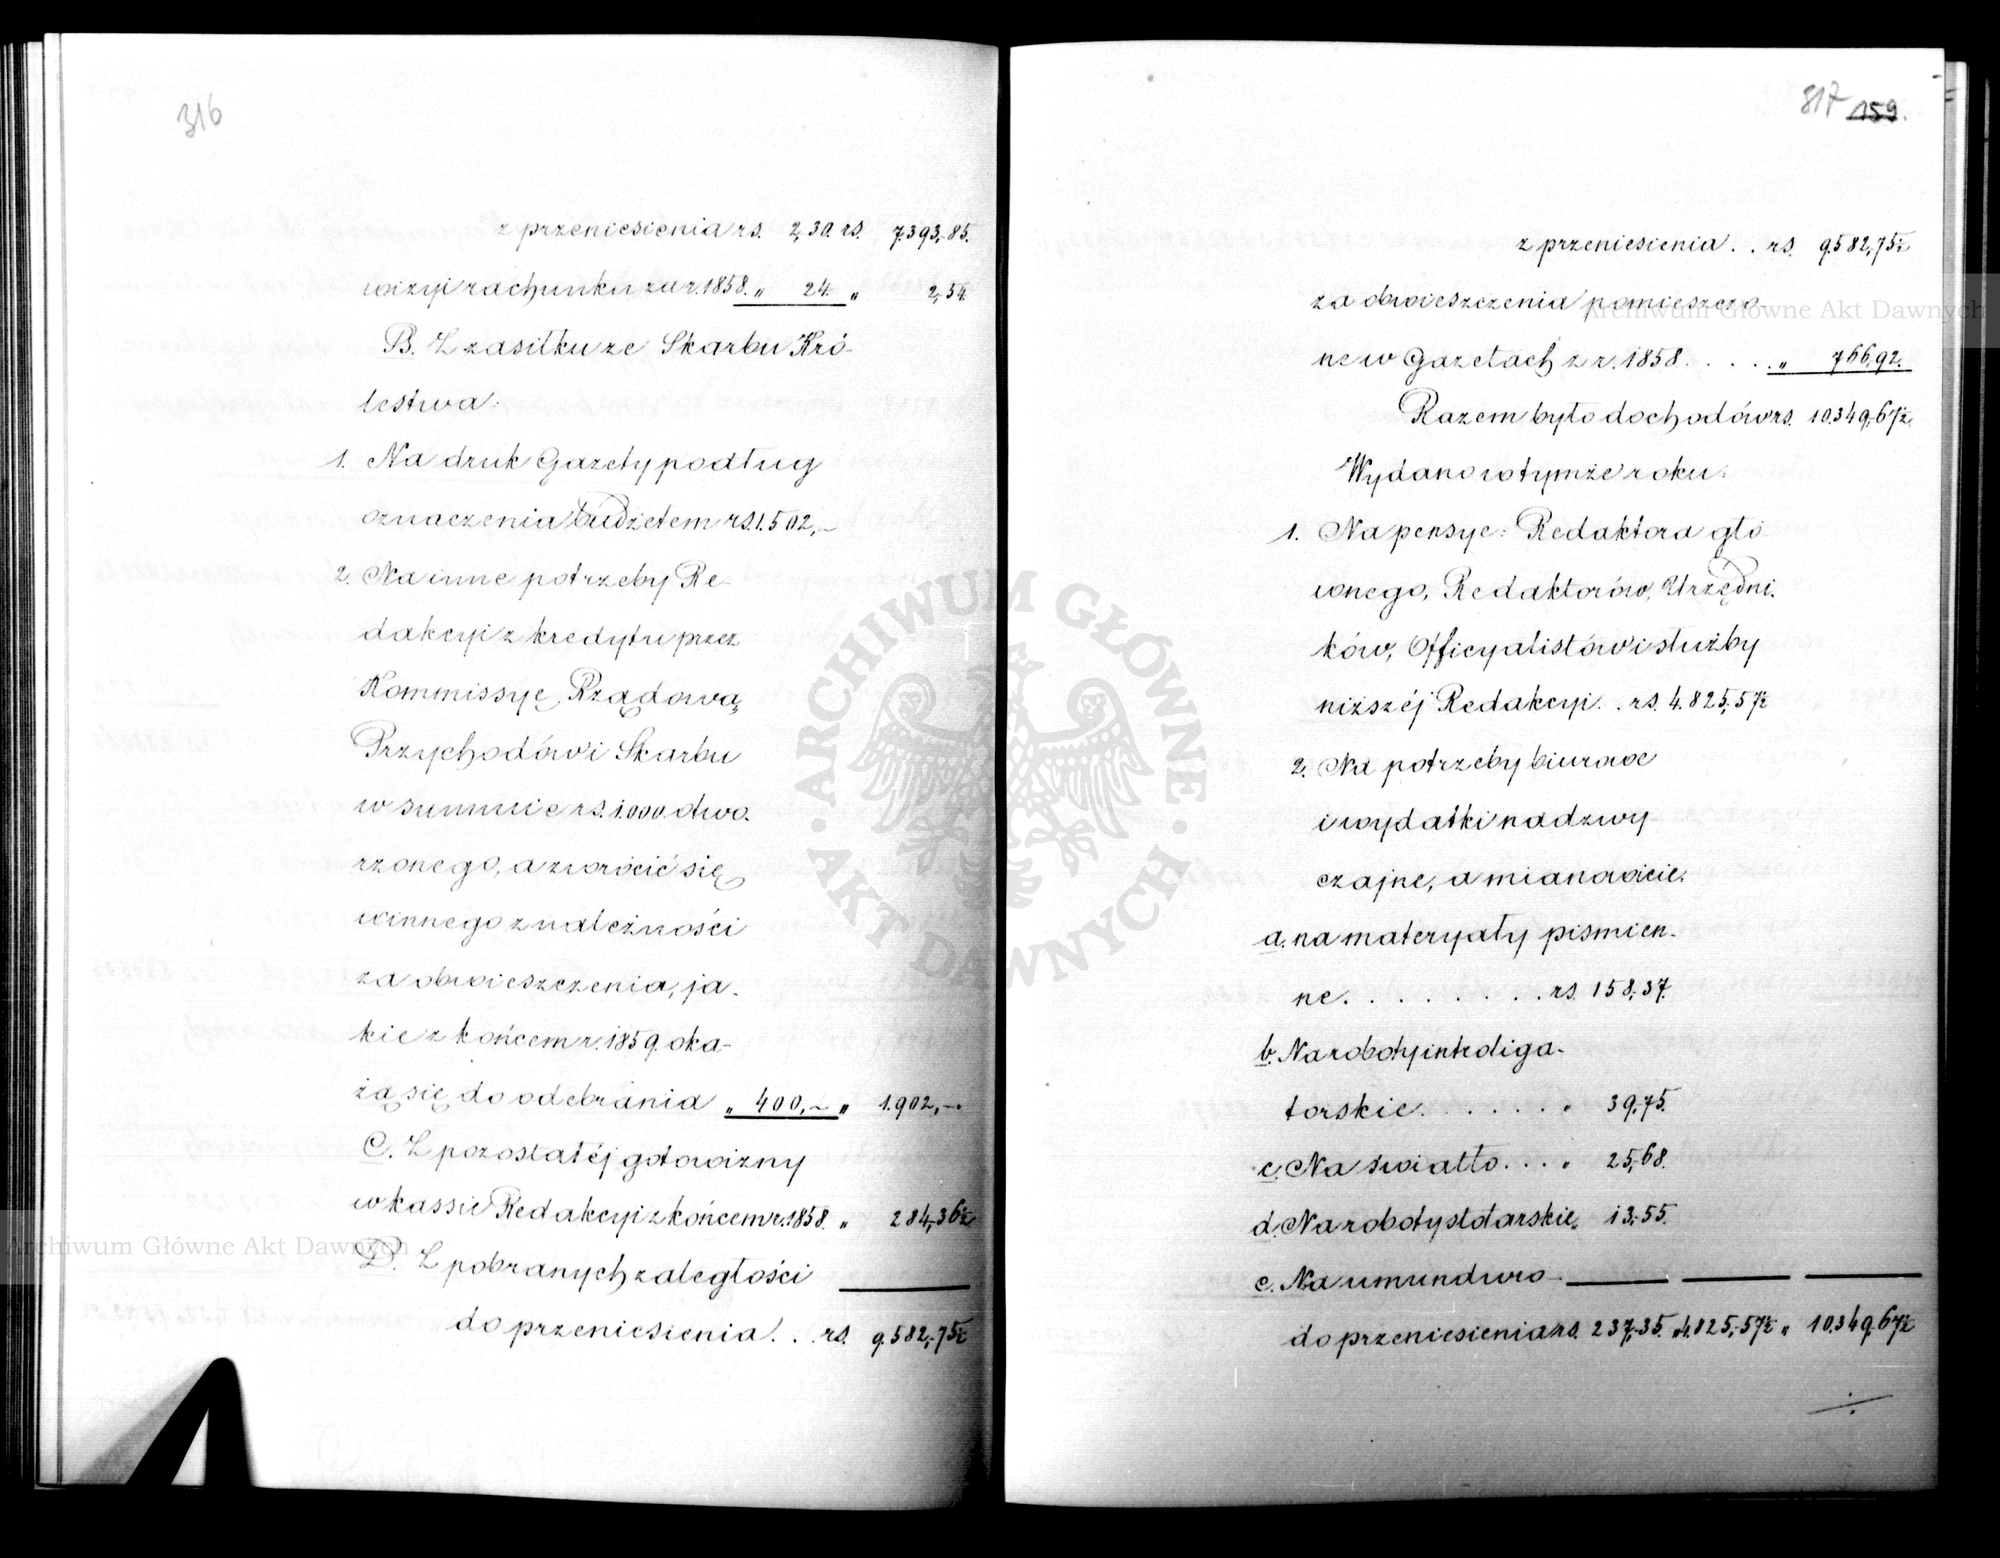 316
z przeniesienia rs. 2,30. rs. 7.393,85.
wizyi rachunku za r. 1858. „ 24. „ 2,54.
B. Z zasiłku ze Skarbu Kró-
lestwa:
1. Na druk Gazety podług
oznaczenia budżetem rs. 1.502,—
2. Na inne potrzeby Re-
dakcyi z kredytu przez
Kommissyę Rządową
Przychodów i Skarbu
w summie rs. 1.000. otwo-
rzonego, a zwrócić się
winnego z należności
za obwieszczenia, ja-
kie z końcem r. 1859. oka-
żą się do odebrania „ 400,— „ 1.902,—.
C. Z pozostałéj gotowizny
w kassie Redakcyi z końcem r. 1858. „ 284,36½
D. Z pobranych zaległości
do przeniesienia . . rs. 9.582,75½
317 159.
z przeniesienia . . rs. 9.582,75½
za obwieszczenia pomieszczo-
ne w Gazetach z r. 1858. . . . . „ 766,92.
Razem było dochodów rs. 10.349,67½.
Wydano w tymże roku:
1. Na pensye: Redaktora głó-
wnego, Redaktorów, Urzędni-
ków, Officyalistów i służby
niższéj Redakcyi . . rs. 4.825,57½
2. Na potrzeby biurowe
i wydatki nadzwy-
czajne, a mianowicie:
a. na materyały piśmien-
ne . . . . . . . . rs. 158,37.
b. Na roboty introliga-
torskie . . . . . . „ 39,75.
c. Na światło . . . „ 25,68.
d. Na roboty stolarskie „ 13,55.
e. Na umundwro-
do przeniesienia rs. 237,35. „ 4.825,57½ „ 10.349,67½
Archiwum Główne Akt Dawnych
Archiwum Główne Akt Dawnych
ARCHIWUM GŁÓWNE · AKT DAWNYCH ·